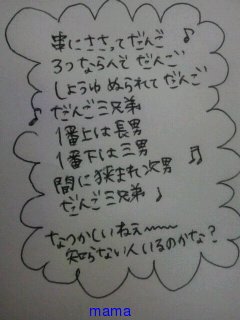 串にささってだんご
3つならんで だんご
しょうゆ ぬられて だんご
だんご三兄弟
1番上は長男
1番下は三男
間に狭まれ次男
だんご三兄弟
なつかしいねぇ〜〜
知らない人いるのかな?
mama